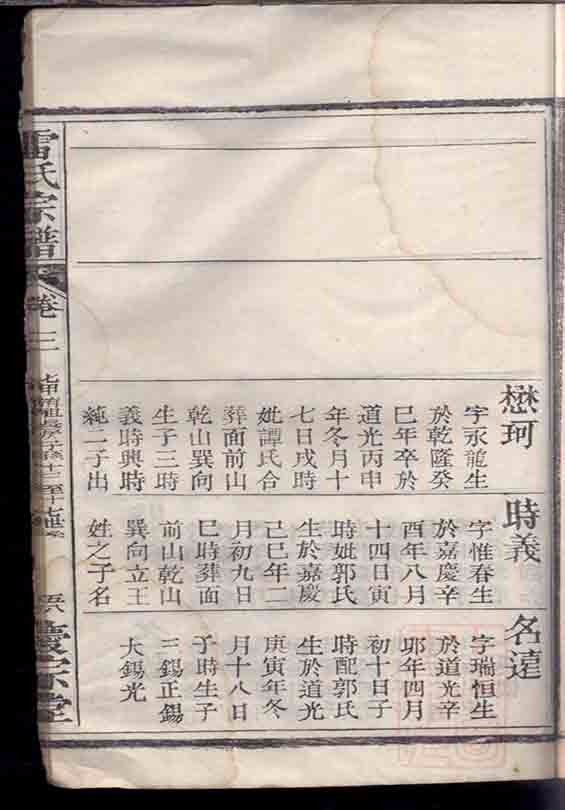 懋珂
字永龍生
於乾隆癸
巳年卒於
道光丙申
年冬月十
七日戌時
妣譚氏合
葬面前山
乾山巽向
生子三時
義時興時
純二子出
時義
字惟春生
於嘉慶辛
酉年八月
十四日寅
時妣郭氏
生於嘉慶
己巳年二
月初九日
巳時葬面
前山乾山
巽向立王
姓之子名
名達
字瑞恒生
於道光辛
卯年四月
初十日子
時配郭氏
生於道光
庚寅年冬
月十八日
子時生子
三錫正錫
大錫光
雷氏宗譜
卷三